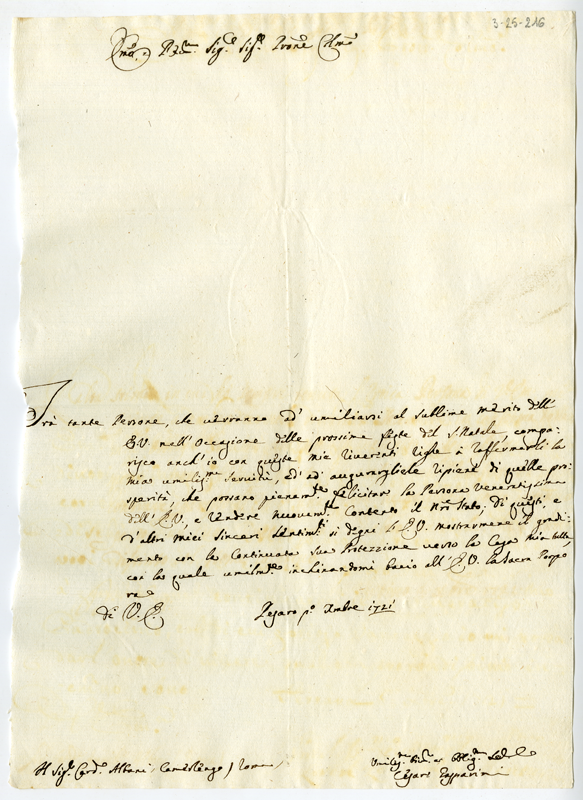 3-25-216
Em.o e R.mo Sig.r Sig.r Prone Colmo
Frà tante Persone, che verranno ad umiliarsi al sublime merito dell'
E.V. nell'occasione delle prossime feste del S. Natale, compa-
risco anch'io con queste mie riverenti righe à raffermarli la
mia umiliss.ma servitù, ed ad augurargliele ripiene di quelle pro-
sperità, che possano pienam.te felicitare la Persona
dell'E.V., e rendere nuovam.te contento il Nrõ Stato; Di questi, e
d'altri miei sinceri sentim.ti si degni l'E.V. mostrarmene il gradi-
mento con la continuata sua Protezzione verso la Casa mia tutta,
con la quale umilm.te inchinandomi bacio all'E.V. la Sacra Porpo
ra
di V. E.
Pesaro p.o Xmbre 1721
Al Sig.r Card.l Albani Camerlengo / Roma
Umiliss.o ed Oblig.mo
Cesare